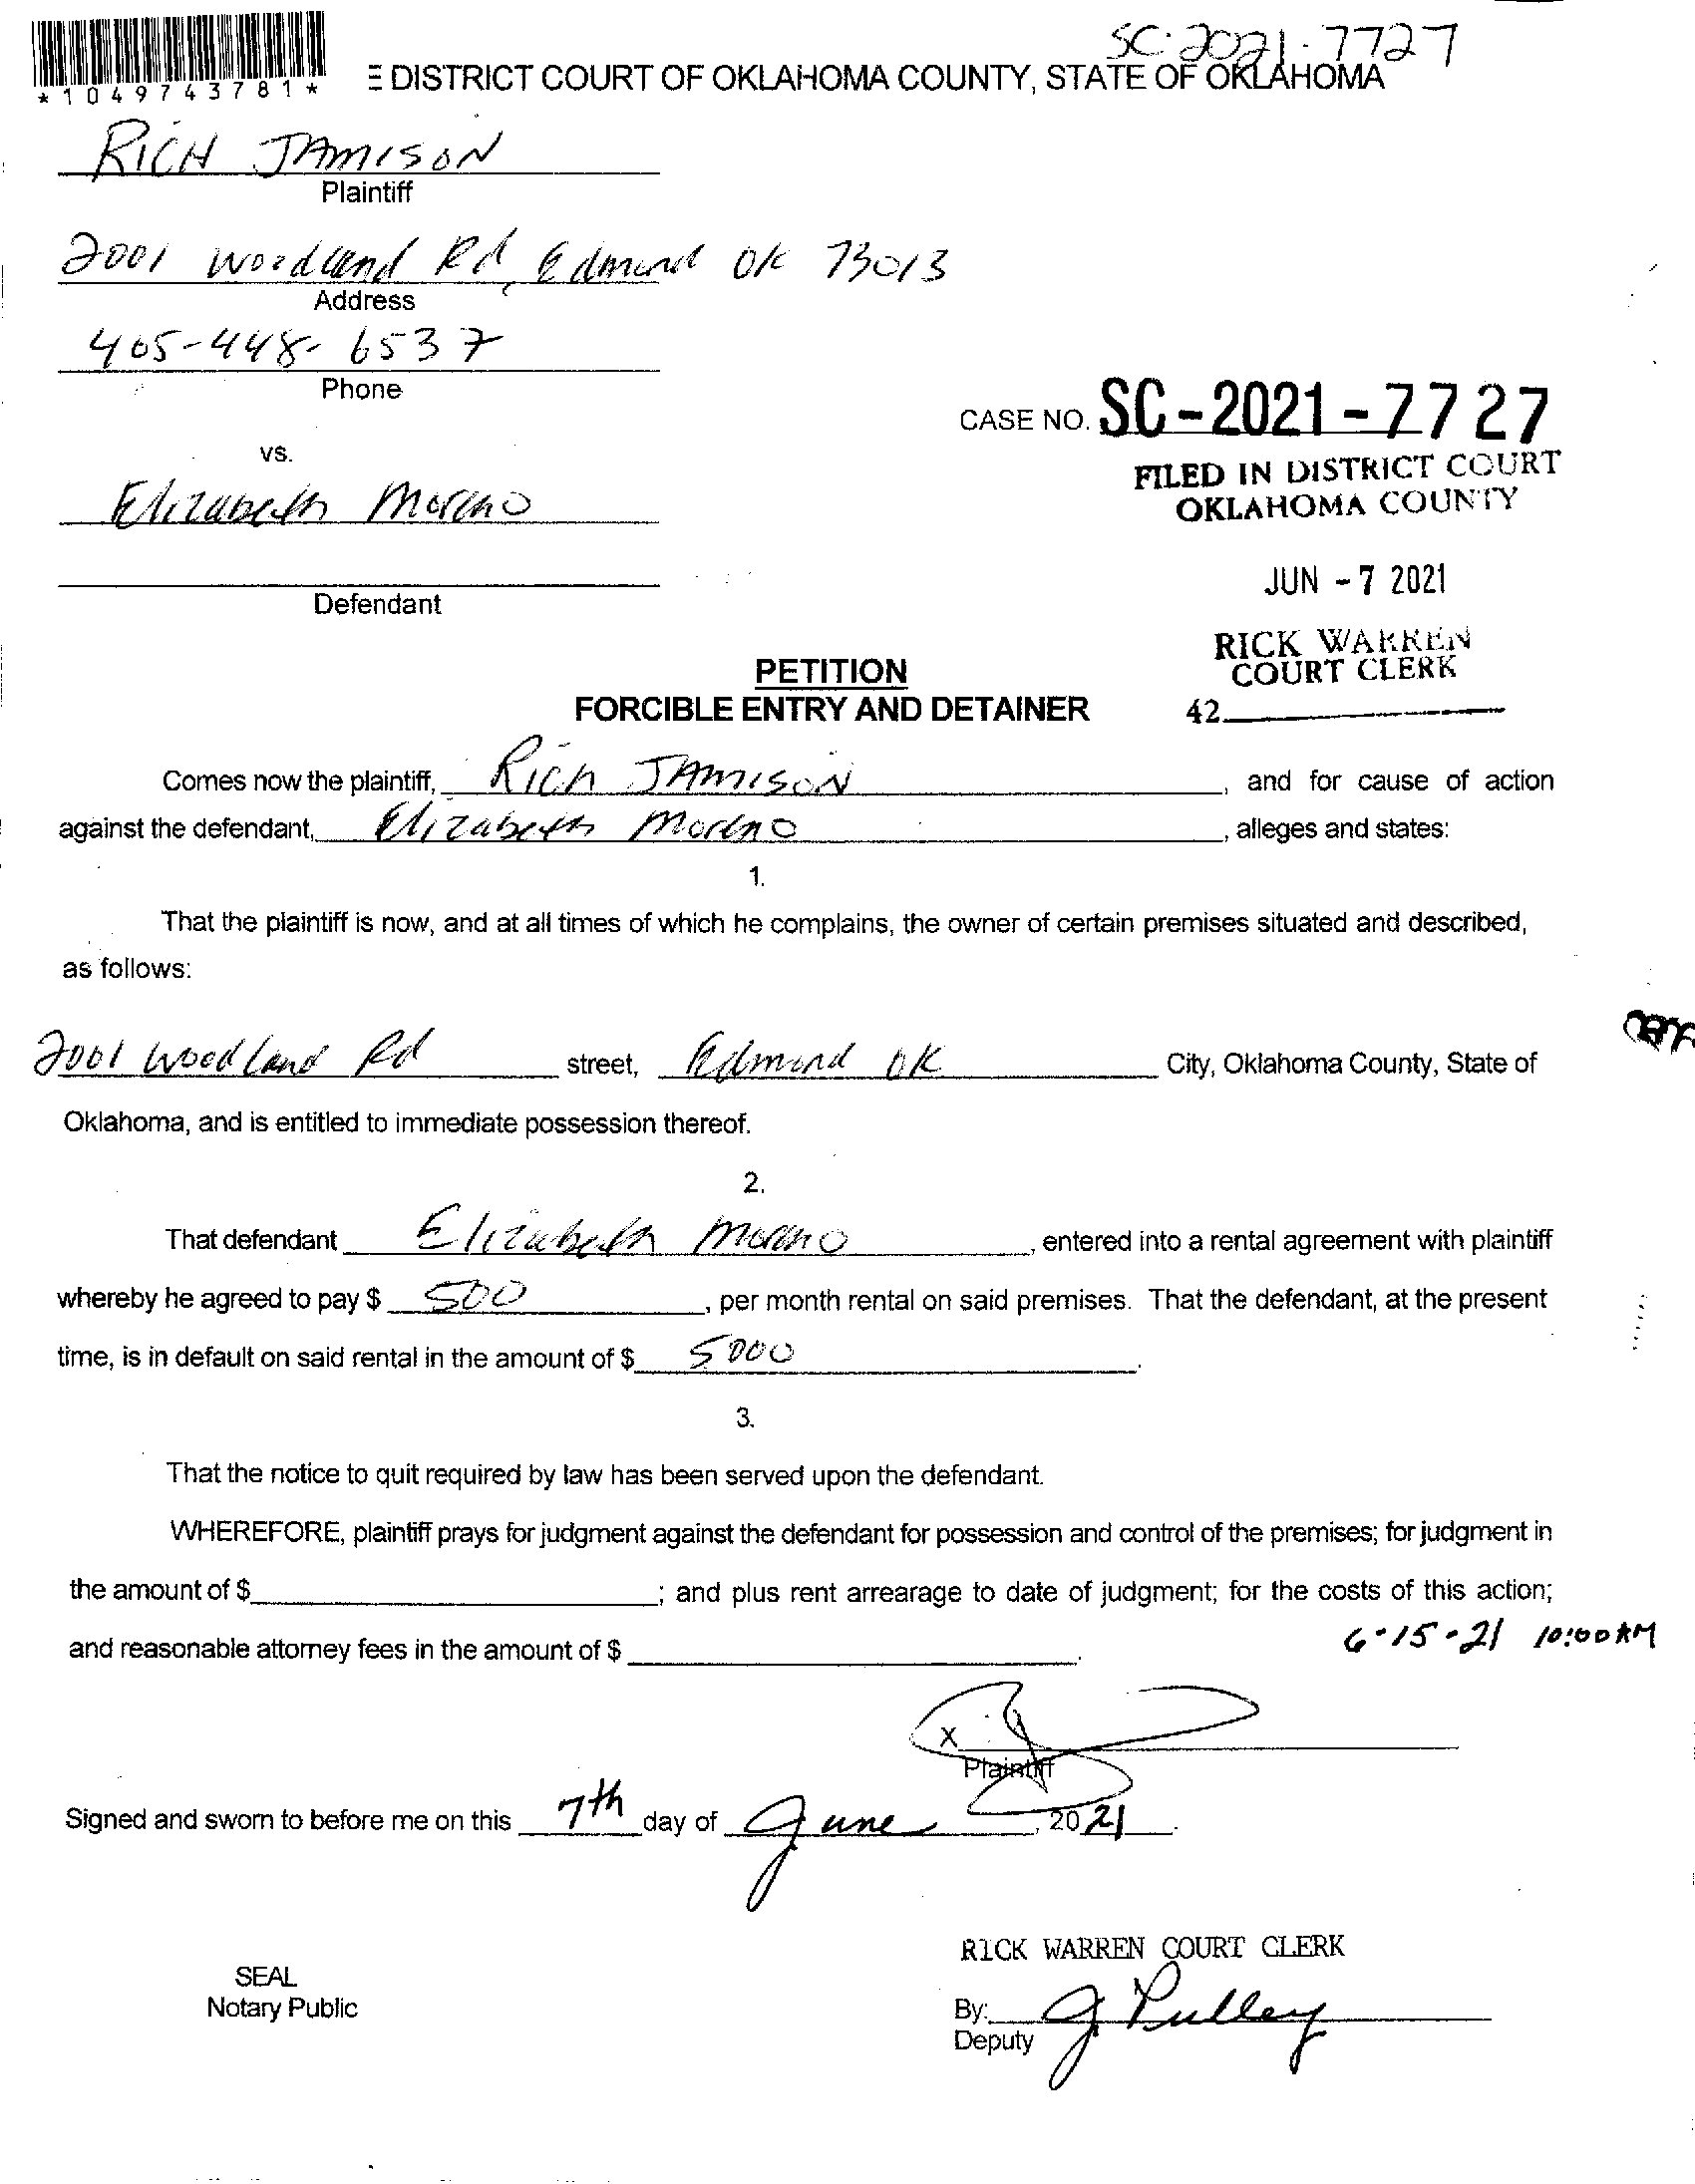 SC-2021-7727
*1049743781*
E DISTRICT COURT OF OKLAHOMA COUNTY, STATE OF OKLAHOMA
RICH JAMISON
Plaintiff
2001 Woodland Rd, Edmond OK 73013
Address
405-448-6537
Phone
CASE NO. SC-2021-7727
vs.
FILED IN DISTRICT COURT
OKLAHOMA COUNTY
Elizabeth Moreno
JUN -7 2021
Defendant
RICK WARREN
COURT CLERK
PETITION
FORCIBLE ENTRY AND DETAINER
42
Comes now the plaintiff, Rich JAMISON, and for cause of action
against the defendant, Elizabeth Moreno, alleges and states:
1.
That the plaintiff is now, and at all times of which he complains, the owner of certain premises situated and described,
as follows:
2001 Woodland Rd street, Edmond OK City, Oklahoma County, State of
Oklahoma, and is entitled to immediate possession thereof.
2.
That defendant Elizabeth Moreno, entered into a rental agreement with plaintiff
whereby he agreed to pay $ 500, per month rental on said premises. That the defendant, at the present
time, is in default on said rental in the amount of $ 5000.
3.
That the notice to quit required by law has been served upon the defendant.
WHEREFORE, plaintiff prays for judgment against the defendant for possession and control of the premises; for judgment in
the amount of $ ; and plus rent arrearage to date of judgment; for the costs of this action;
and reasonable attorney fees in the amount of $ .
6-15-21 10:00 AM
X
Plaintiff
Signed and sworn to before me on this 7th day of June, 2021.
RICK WARREN COURT CLERK
SEAL
Notary Public
By: J Pulley
Deputy